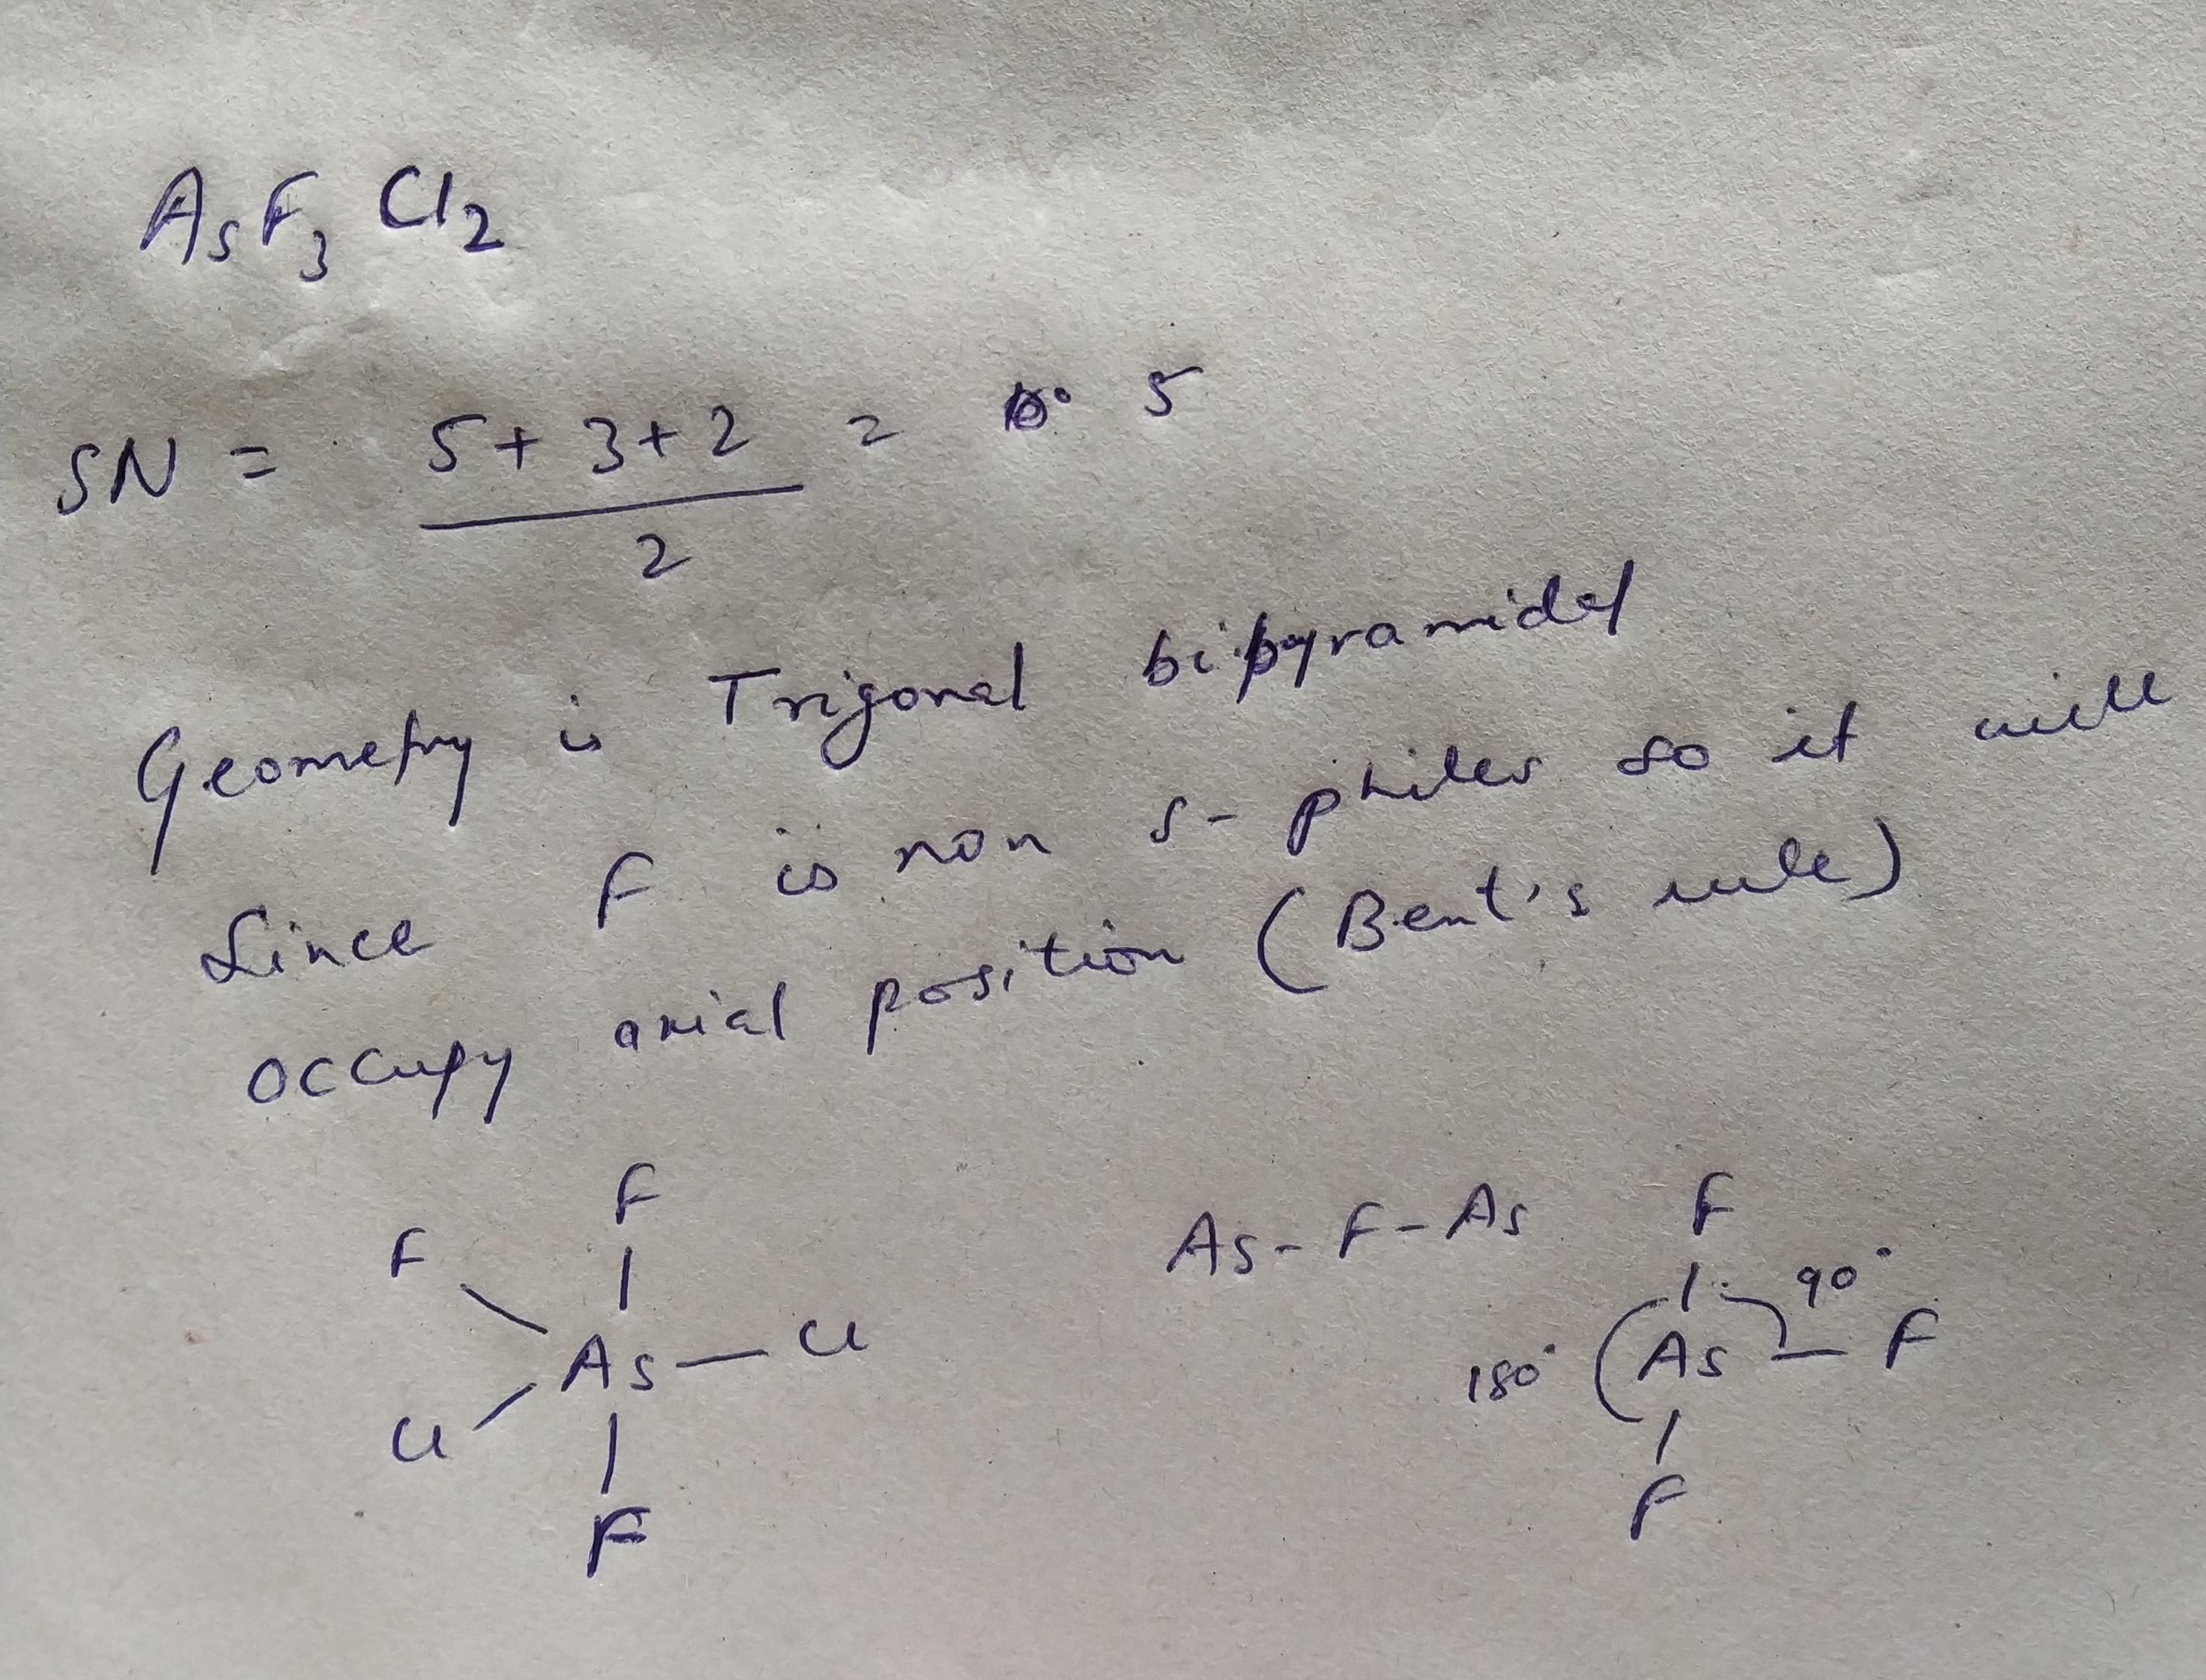 AsF3Cl2
SN = 5+3+2 = 5
2
Geometry is Trigonal bipyramidal
Since F is non s-philes so it will
occupy axial position (Bent's rule)
F
F
As - Cl
Cl
F
As-F-As
F
90°
180° As - F
F